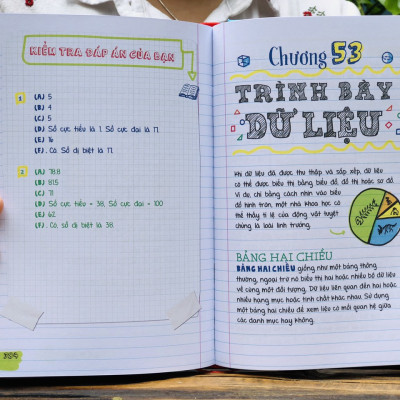 KIỂM TRA ĐÁP ÁN CỦA BẠN
1 (A) 5
(B) 4
(C) 5
(D) Số cực tiểu là 1. Số cực đại là 17.
(E) 16
(F). Có. Số dị biệt là 17.
2 (A) 78.8
(B) 81.5
(C) 71
(D) Số cực tiểu = 38, Số cực đại = 100
(E) 62
(F). Có, số dị biệt là 38.
Chương 53
TRÌNH BÀY
DỮ LIỆU
Khi dữ liệu đã được thu thập và sắp xếp, dữ liệu
có thể được biểu thị bằng biểu đồ, đồ thị hoặc sơ đồ.
Ví dụ, chỉ bằng cách nhìn vào biểu
đồ hình tròn, một nhà khoa học có
thể thấy tỉ lệ của động vật tuyệt
chủng là loài linh trưởng.
BẢNG HAI CHIỀU
BẢNG HAI CHIỀU giống như một bảng thông
thường, ngoại trừ nó biểu thị hai hoặc nhiều bộ dữ liệu
về cùng một đối tượng. Dữ liệu liên quan đến hai hoặc
nhiều hạng mục hoặc tính chất khác nhau. Sử dụng
một bảng hai chiều để xem liệu có mối quan hệ giữa
các danh mục hay không.